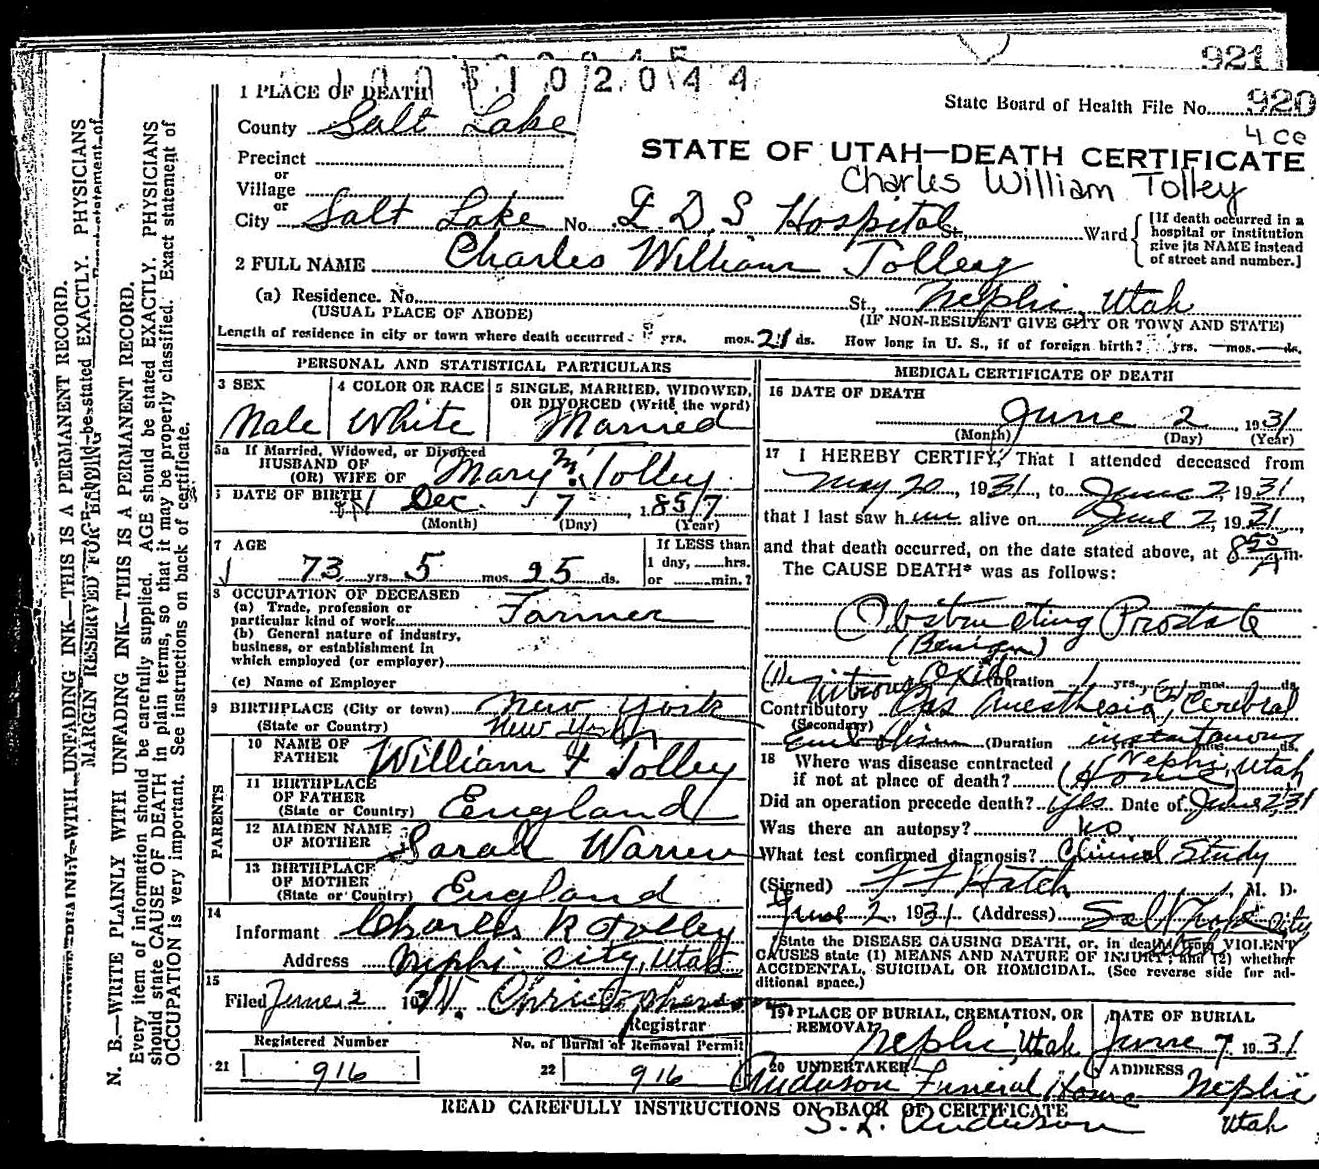 921
1003102044
1 PLACE OF DEATH
State Board of Health File No. 920
County Salt Lake
4 ce
Precinct
STATE OF UTAH—DEATH CERTIFICATE
or
Village
Charles William Tolley
or
City Salt Lake No. L. D. S. Hospital St., Ward
[If death occurred in a hospital or institution give its NAME instead of street and number.]
2 FULL NAME Charles William Tolley
(a) Residence. No. St., Nephi, Utah
(USUAL PLACE OF ABODE) (IF NON-RESIDENT GIVE CITY OR TOWN AND STATE)
Length of residence in city or town where death occurred yrs. mos. 21 ds. How long in U. S., if of foreign birth? yrs. mos. ds.
PERSONAL AND STATISTICAL PARTICULARS
3 SEX 4 COLOR OR RACE 5 SINGLE, MARRIED, WIDOWED, OR DIVORCED (Write the word)
Male White Married
5a If Married, Widowed, or Divorced
HUSBAND OF
(OR) WIFE OF Mary M. Tolley
6 DATE OF BIRTH Dec. 7, 1857
(Month) (Day) (Year)
7 AGE If LESS than
1 day, hrs.
73 yrs. 5 mos. 25 ds. or min.?
8 OCCUPATION OF DECEASED
(a) Trade, profession or
particular kind of work Farmer
(b) General nature of industry,
business, or establishment in
which employed (or employer)
(c) Name of Employer
9 BIRTHPLACE (City or town) New York
(State or Country) New York
PARENTS
10 NAME OF FATHER William F Tolley
11 BIRTHPLACE OF FATHER (State or Country) England
12 MAIDEN NAME OF MOTHER Sarah Warren
13 BIRTHPLACE OF MOTHER (State or Country) England
14
Informant Charles R Tolley
Address Nephi City, Utah
15
Filed June 2 1931 Christopherson
Registrar
Registered Number No. of Burial or Removal Permit
21 916 22 916
MEDICAL CERTIFICATE OF DEATH
16 DATE OF DEATH
June 2 1931
(Month) (Day) (Year)
17 I HEREBY CERTIFY, That I attended deceased from
May 20, 1931, to June 2, 1931,
that I last saw him alive on June 2, 1931,
and that death occurred, on the date stated above, at 8 50 A m.
The CAUSE DEATH* was as follows:
Obstructing Prostate
(Benign)
Nitrous Oxide (Duration 1 yrs. mos. ds.
Contributory Gas Anesthesia, Cerebral
(Secondary)
Embolism (Duration instantaneous ds.
18 Where was disease contracted Nephi, Utah
if not at place of death? (Home)
Did an operation precede death? Yes Date of June 2, 31
Was there an autopsy? no
What test confirmed diagnosis? Clinical Study
(Signed) F F Hatch, M. D.
June 2, 1931 (Address) Salt Lake City
*State the DISEASE CAUSING DEATH, or, in deaths from VIOLENT
CAUSES state (1) MEANS AND NATURE OF INJURY; and (2) whether
ACCIDENTAL, SUICIDAL OR HOMICIDAL. (See reverse side for ad-
ditional space.)
19 PLACE OF BURIAL, CREMATION, OR REMOVAL DATE OF BURIAL
Nephi, Utah June 7 1931
20 UNDERTAKER ADDRESS
Anderson Funeral Home Nephi
READ CAREFULLY INSTRUCTIONS ON BACK OF CERTIFICATE
S. L. Anderson Utah
MARGIN RESERVED FOR BINDING
N. B.—WRITE PLAINLY WITH UNFADING INK—THIS IS A PERMANENT RECORD.
Every item of information should be carefully supplied. AGE should be stated EXACTLY. PHYSICIANS
should state CAUSE OF DEATH in plain terms, so that it may be properly classified. Exact statement of
OCCUPATION is very important. See instructions on back of certificate.